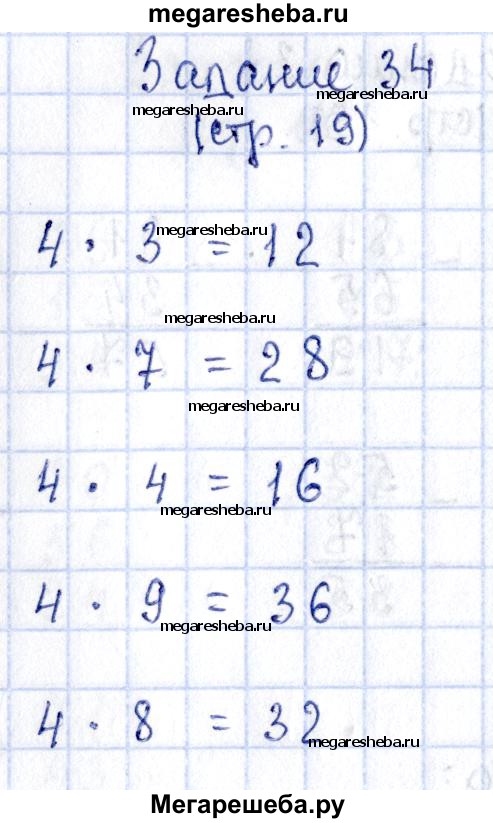 megaresheba.ru
Задание 34
megaresheba.ru megaresheba.ru
(стр. 19)
4 · 3 = 12
megaresheba.ru
megaresheba.ru
4 · 7 = 28
megaresheba.ru
4 · 4 = 16
megaresheba.ru
4 · 9 = 36
megaresheba.ru
4 · 8 = 32
megaresheba.ru
Мегарешеба.ру